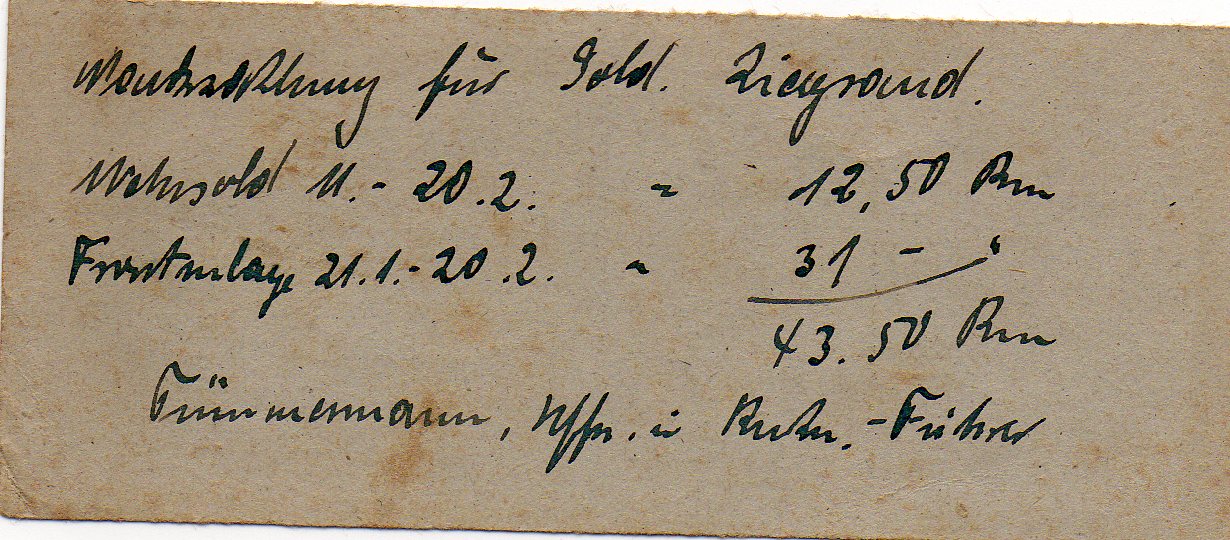 für Sold. Ziegrand.
Wehrsold 11.- 20.2. " 12,50 Rm
Frontzulage 21.1.- 20.2. " 31 - "
43.50 Rm
Tümmermann, Uffz. u. Rechn.-Führer